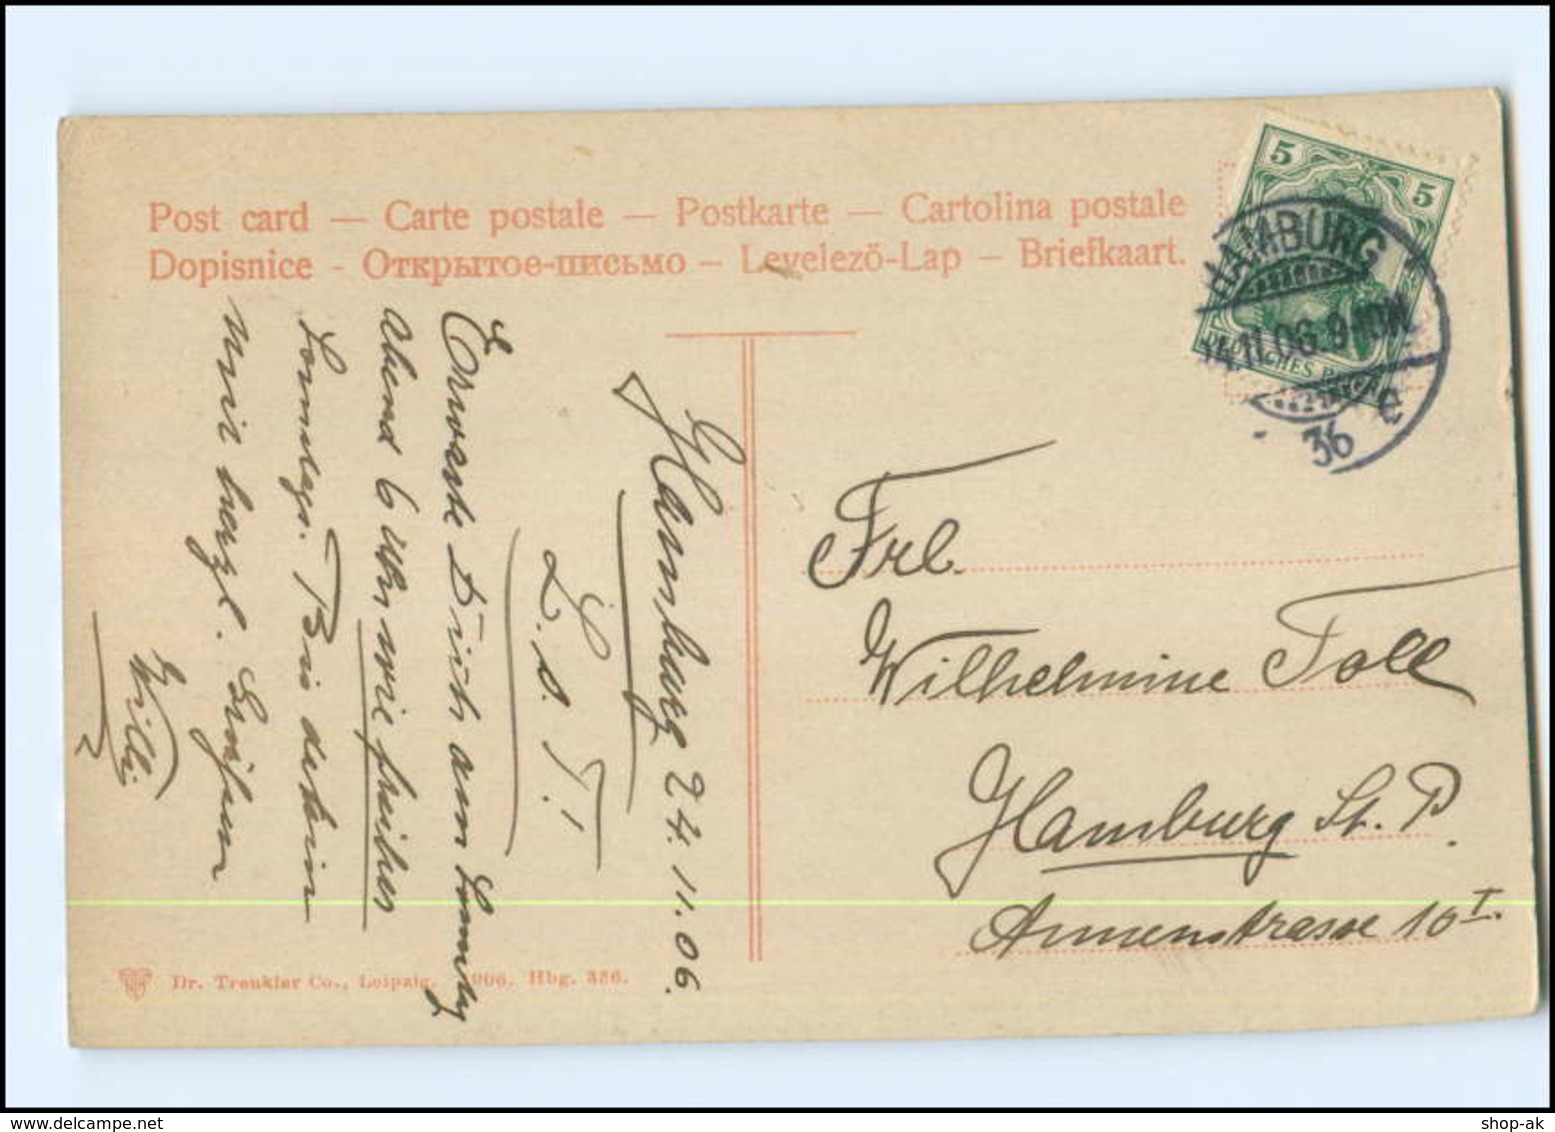 Post card — Carte postale — Postkarte — Cartolina postale
Dopisnice - Открытое-письмо — Levelezö-Lap — Briefkaart.
5 5
HAMBURG
11.06. 9-10N
DEUTSCHES REICH
36 e
Hamburg 24.11.06.
L. s. T.!
Erwarte Dich am Sonntag
abend 6 Uhr wie früher
Sonntags. Bis dahin
mit herzl. Grüßen
Willi
Frl.
Wilhelmine Toll
Hamburg St. P.
Annenstrasse 10 I.
Dr. Trenkler Co., Leipzig. 1906. Hbg. 336.
shop-ak